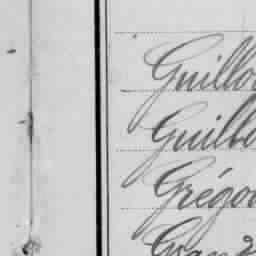 Guillo
Guilbe
Grégoi
Grand